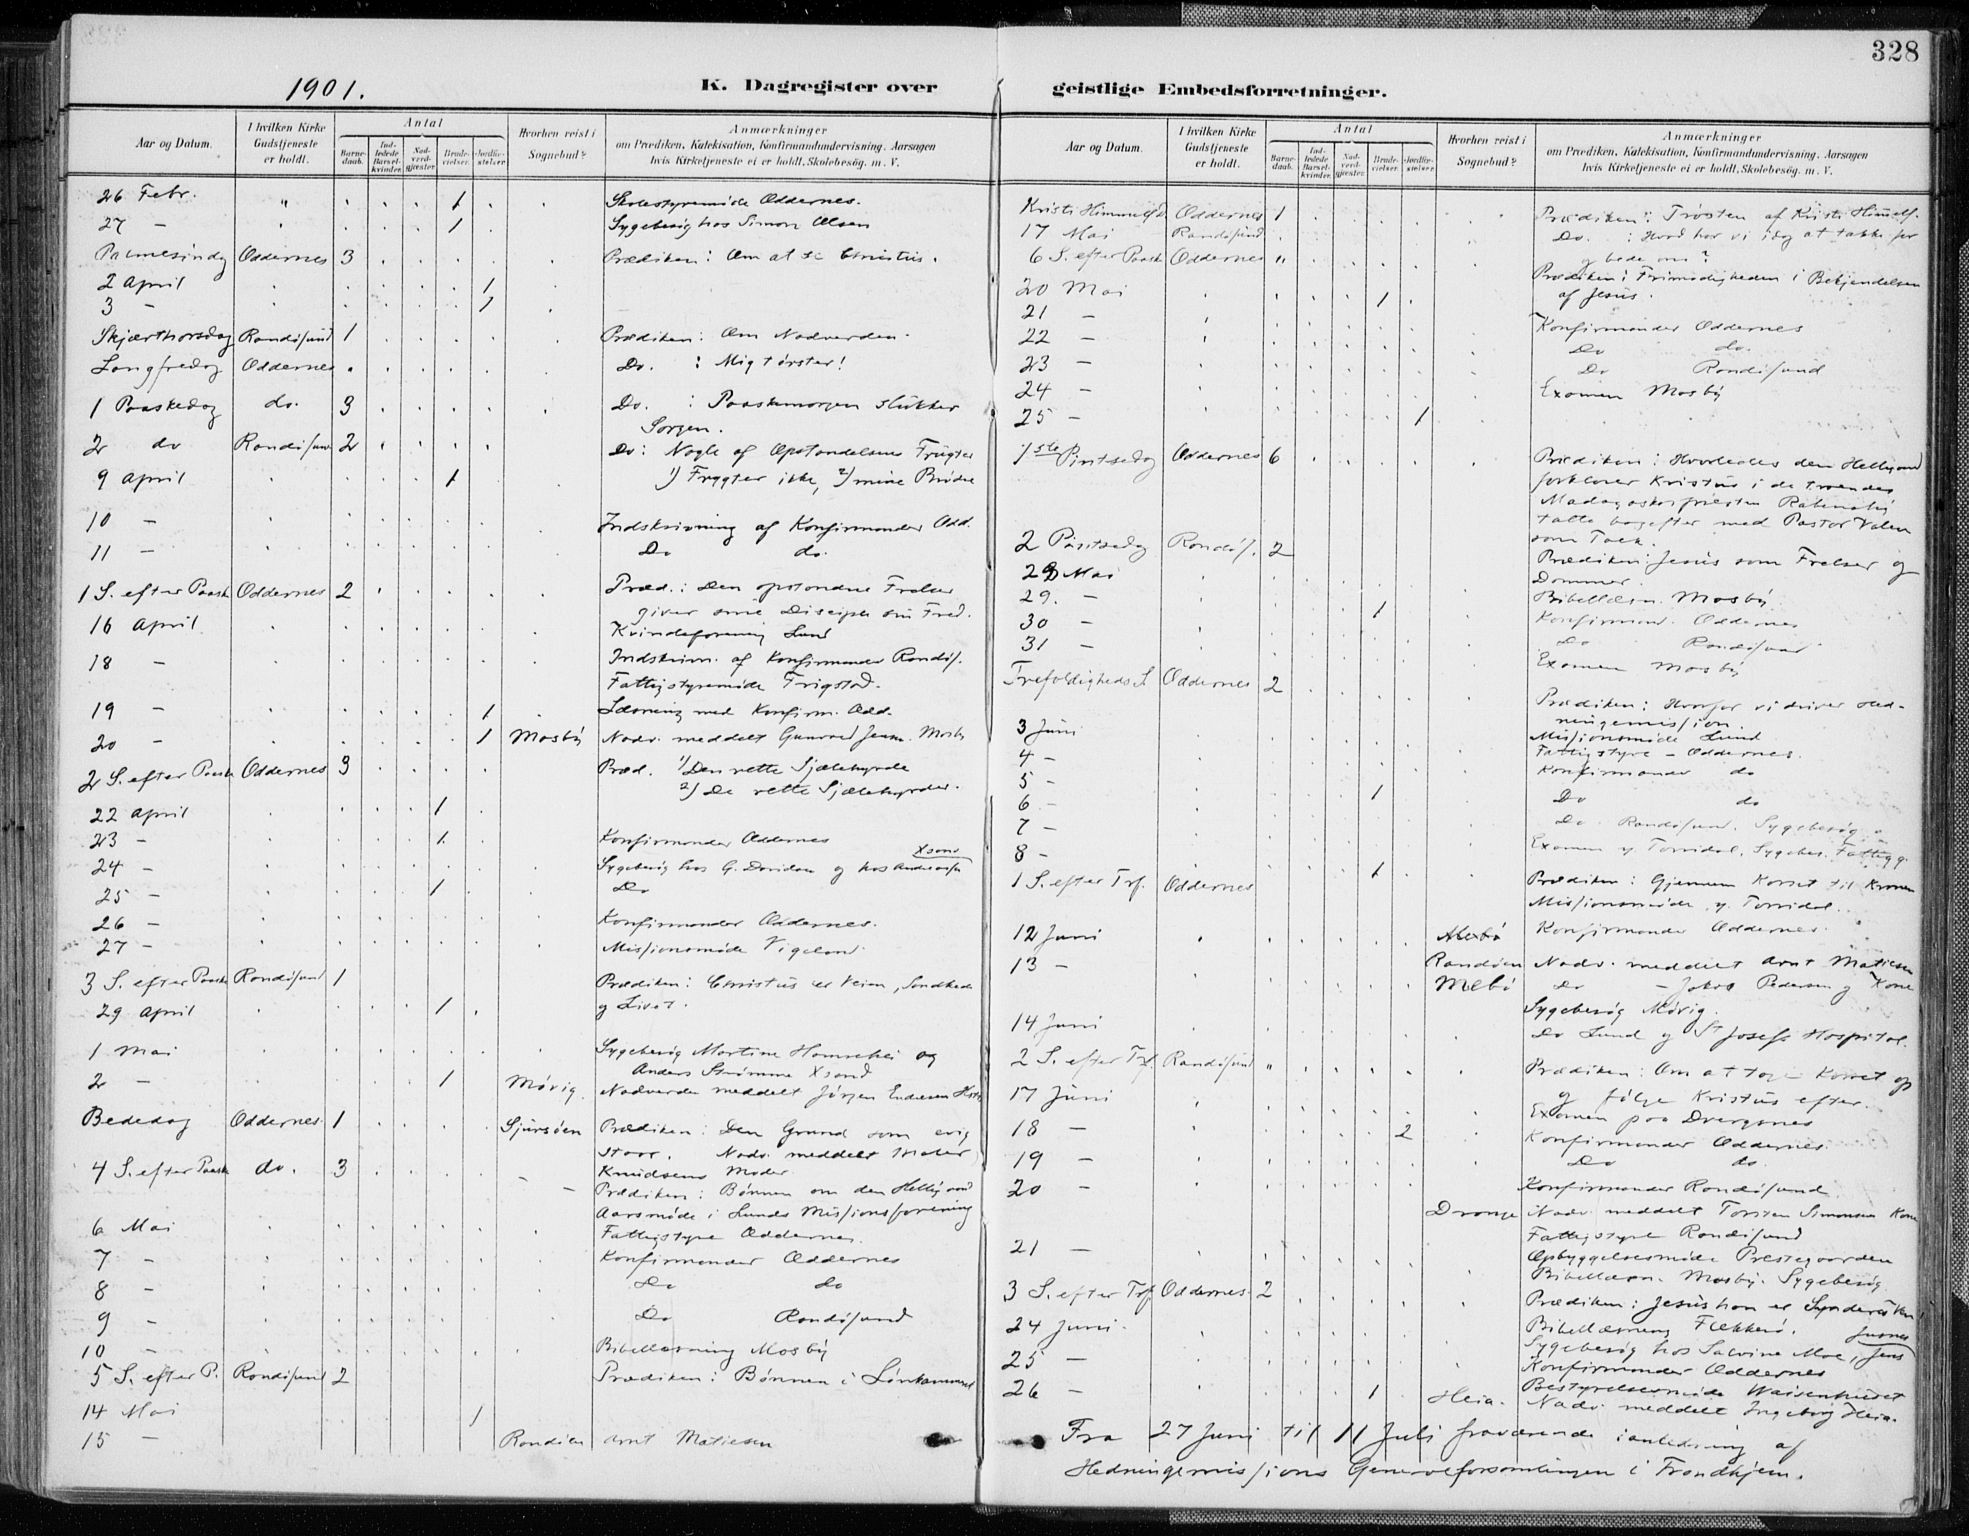 328
1901.
K. Dagregister over geistlige Embedsforretninger.
Aar og Datum.
I hvilken Kirke Gudstjeneste er holdt.
Antal
Barnedaab.
Indledede Barselkvinder.
Nadverdgjester.
Brudevielser.
Jordfæstelser.
Hvorhen reist i Sognebud?
Anmærkninger
om Prædiken, Katekisation, Konfirmandundervisning, Aarsagen
hvis Kirketjeneste ei er holdt, Skolebesög. m. V.
26 Febr. " 1 Skolestyremöde Oddernes.
27 — 1 Sygebesög hos Simon Olsen
Palmesöndag Oddernes 3 Prædiken: Om at se Christus.
2 April 1
3 — 1
Skjærthorsdag Randösund 1 Prædiken: Om Nadverden.
Langfredag Oddernes Do. : Mig törster!
1 Paaskedag do. 3 Do. : Paaskemorgen slukker
Sorgen.
2 do Randösund 2 Do: Nogle af Opstandelsens Frugter
9 April 1 1) Frygter ikke, 2) mine Brödre
10 — Indskrivning af Konfirmander Odd.
11 — Do do.
1 S. efter Paask Oddernes 2 Præd.: Den opstandne Frelser
giver sine Disciple sin Fred.
16 April Kvindeforening Lund
18 — Indskrivn. af Konfirmander Randös.
Fattigstyremöde Frigstad.
19 — 1 Læsning med Konfirm. Odd.
20 — 1 Mosby Nadv. meddelt Gunvor Jensn. Mosby
2 S. efter Paask Oddernes 3 Præd. 1) Den rette Sjælehyrde
2) De rette Sjælehyrder.
22 April 1
23 — 1 Konfirmander Oddernes
24 — Sygebesög hos G. Davidsen og hos Andersen Xsand
25 — 1 Do
26 — Konfirmander Oddernes.
27 — Missionsmöde Vigeland
3 S. efter Paask Randösund 1 Prædiken: Christus er Veien, Sandheden
og Livet.
29 April 1
1 Mai Sygebesög Martine Hamrehei og
Anders Strömme Xsand
2 — 1 Mövig. Nadverde meddelt Jörgen Endresen
Bededag Oddernes 1 Sjursöen Prædiken: Den Grund som evig
staar. Nadv. meddelt
Knudsens Moder
4 S. efter Paask do. 3 Prædiken: Bönnen om den Hellig and
Aarsmöde i Lunds Missionsforening
6 Mai Fattigstyre Oddernes.
7 — Konfirmander Oddernes
8 — Do do
9 — Do Randösund
10 — Bibellæsning Mosby
5 S. efter P. Randösund 2 Prædiken: Bönnen i Lönkammeret
14 Mai 1
15 — Randöen Arnt Matiesen
Aar og Datum.
I hvilken Kirke Gudstjeneste er holdt.
Antal
Barnedaab.
Indledede Barselkvinder.
Nadverdgjester.
Brudevielser.
Jordfæstelser.
Hvorhen reist i Sognebud?
Anmærkninger
om Prædiken, Katekisation, Konfirmandundervisning, Aarsagen
hvis Kirketjeneste ei er holdt, Skolebesög. m. V.
Kristi Himmelfd. Oddernes 1 Prædiken: Trösten af Kristi Himmelf.
17 Mai Randösund Do. : Hvad har vi idag at takke for
og bede om?
6 S. efter Paask Oddernes " Prædiken: Frimodigheden i Bekjendelsen
af Jesus.
20 Mai 1
21 — Konfirmander Oddernes
22 — Do do.
23 — Do Randösund
24 — Examen Mosby
25 — 1
1ste Pintsedag Oddernes 6 Prædiken: Hvorledes den Hellig and
forklarer Kristus i de troendes
Madagaskarpresten
talte bagefter med Pastor Valen
som Tolk.
2 Pintsedag Randös. 2 Prædiken: Jesus som Frelser og
Dommer.
28 Mai Bibellæsn. Mosby
29. — 1 Konfirmand. Oddernes
30 — Do Randösund
31 — Examen Mosby
Trefoldigheds S. Oddernes 2 Prædiken: Hvorfor vi driver Hed-
ningemission.
3 Juni Missionsmöde Lund
4 — Fattigstyre — Oddernes.
5 — Konfirmander do
6 — 1 Do do
7 — Do Randösund. Sygebesög
8 — Examen y. Torridal. Sygebes.
1 S. efter Trf. Oddernes 1 Prædiken: Gjennem Korset til Kronen
Missionsmöde y. Torridal.
12 Juni Konfirmander Oddernes.
13 — Randöen Nadv. meddelt Arnt Matiesen
Mebö Do — Jakob Pedersen og Kone
Sygebesög Mövig.
14 Juni Do Lund og St Josefs Hospital.
2 S. efter Trf. Randösund " Prædiken: Om at tage Korset op
og fölge Kristus efter.
17 Juni Examen paa Dvergsnes
18 — 2 Konfirmander Oddernes
19 — Do do.
20 — Konfirmander Randösund
Drange Nadv. meddelt Torsten Simonsens Kone
Fattigstyre Randösund
21 — Opbyggelsesmöde Prestegaarden
Bibellæsn. Mosby. Sygebesög
3 S. efter Trf. Oddernes. 2 Prædiken: Jesus han er Synderes Ven!
24 Juni. Bibellæsning Flekkerö.
25 — Sygebesög hos Salvine Moe, Jens
Konfirmander Oddernes
26 — 1 Bestyrelsesmöde Waisenhuset
Heia. Nadv. meddelt Ingeborg Heia.
Fra 27 Juni til 11 Juli fraværende ianledning af
Hedningemissions Generalforsamlingen i Trondhjem.